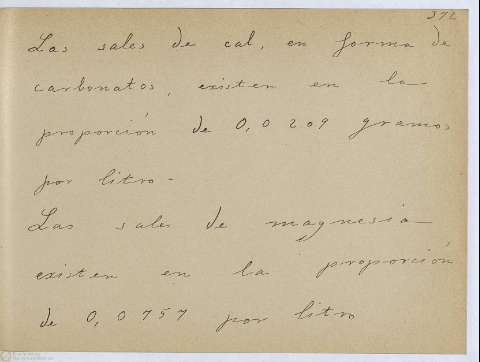 372
Las sales de cal, en forma de
carbonatos, existen en la
proporción de 0,0209 gramos
por litro -
Las sales de magnesia
existen en la proporción
de 0,0757 por litro